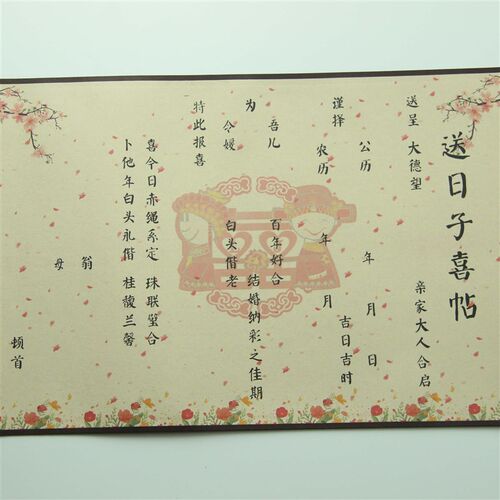 送日子喜帖
送呈 大德望 亲家大人合启
谨择 公历 年 月 日
农历 年 月 吉日吉时
为 吾儿 百年好合 结婚纳彩之佳期
令嫒 白头偕老
特此报喜
喜今日赤绳系定 珠联璧合
卜他年白头永偕 桂馥兰馨
翁
母
顿首